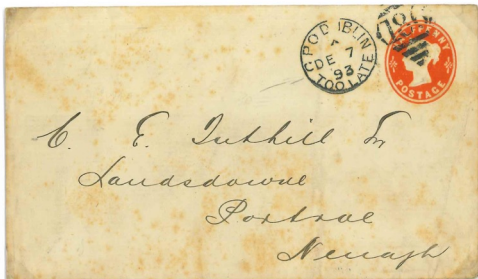 G.P.O. DUBLIN
DE 7
93
TOO LATE
186
HALFPENNY
POSTAGE
C. E. Tuthill Esq
Landsdowne
Portroe
Nenagh